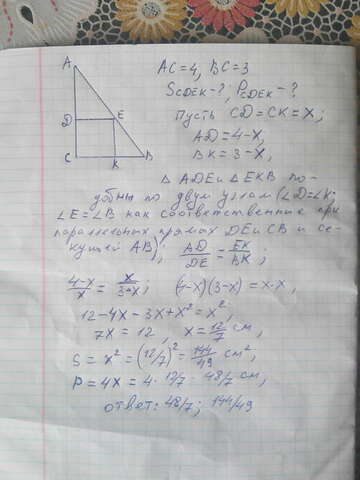 A
AC=4, BC=3
S CDEK-?, P CDEK-?
Пусть CD=CK=X;
D
E
AD=4-X,
BK=3-X,
C
K
B
△ ADE и △ EKB по-
добны по двум углам (∠D=∠K;
∠E=∠B как соответственные при
параллельных прямых DE и CB и се-
кущей AB); AD/DE = EK/BK;
4-x/x = x/3-x; (4-x)(3-x)=x·x,
12-4x-3x+x²=x²;
7x=12, x=12/7 см,
S=x²=(12/7)²=144/49 см²,
P=4x=4·12/7=48/7 см,
ответ: 48/7; 144/49